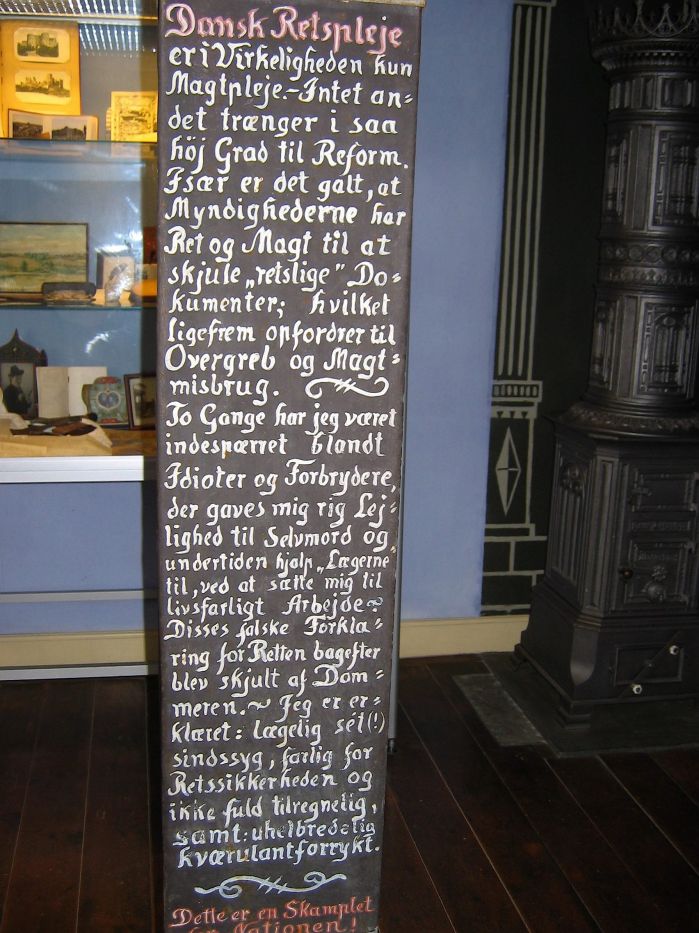 Dansk Retspleje
er i Virkeligheden kun
Magtpleje.-Intet an=
det trænger i saa
höj Grad til Reform.
Især er det galt, at
Myndighederne har
Ret og Magt til at
skjule „retslige” Do=
kumenter; hvilket
ligefrem opfordrer til
Overgreb og Magt=
misbrug.
To Gange har jeg været
indespærret blandt
Idioter og Forbrydere,
der gaves mig rig Lej=
lighed til Selvmord og,
undertiden hjalp „Lægerne”
til, ved at sætte mig til
livsfarligt Arbejde~
Disses falske Forkla=
ring for Retten bagefter
blev skjult af Dom=
meren.~ Jeg er er=
klæret: lægelig sét(!)
sindssyg, farlig for
Retssikkerheden og
ikke fuld tilregnelig,
samt: uhelbredelig
kværulantforrykt.
Dette er en Skamplet
for Nationen!